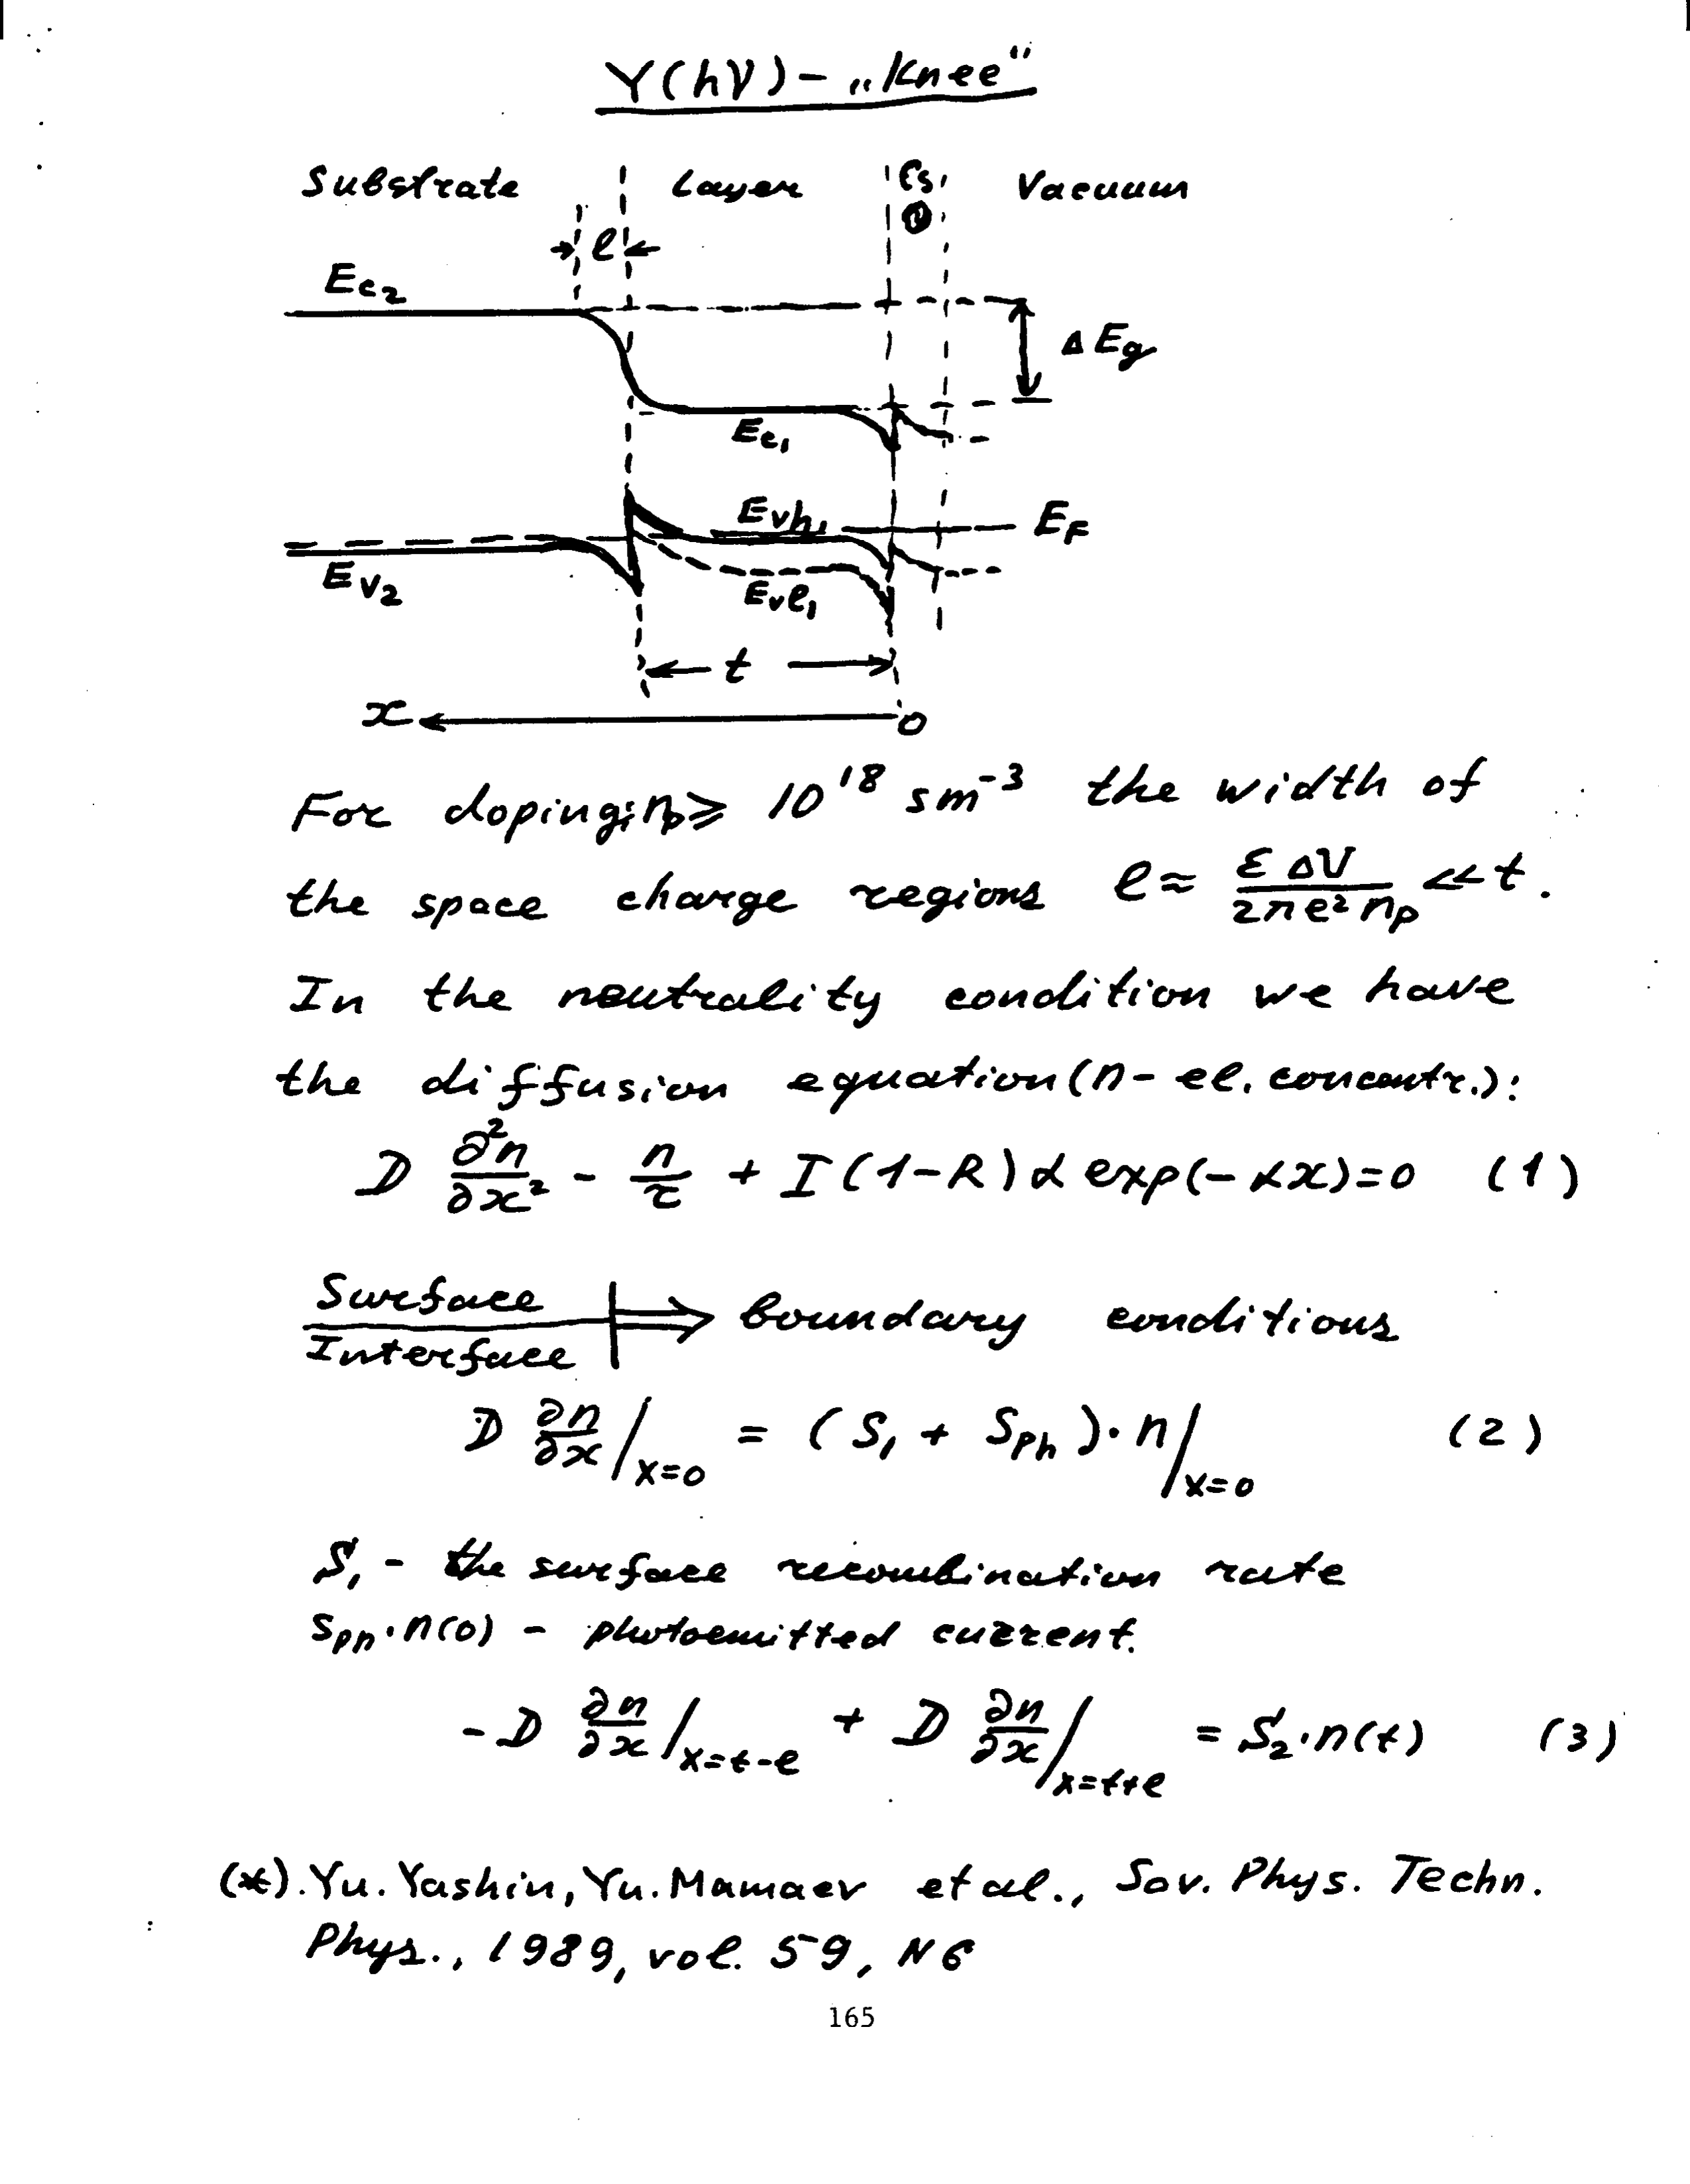 Y(hν) – „Knee“
Substrate Layer Cs, Vacuum
l
Ec₂
ΔEg
Ec₁
Evh₁ EF
Ev₂ Evl₁
t
x 0
For doping: np ⩾ 10¹⁸ sm⁻³ the width of
the space charge regions l ≈ ε ΔV / 2πe² np ≪ t.
In the neutrality condition we have
the diffusion equation (n - el. concentr.):
D ∂²n/∂x² - n/τ + I(1-R)α exp(-αx)=0 (1)
Surface
Interface ⇒ boundary conditions
D ∂n/∂x /x=0 = (S₁ + Sph)·n/x=0 (2)
S₁ - the surface recombination rate
Sph·n(0) - photoemitted current.
-D ∂n/∂x /x=t-l + D ∂n/∂x /x=t+l = S₂·n(t) (3)
(*). Yu. Yashin, Yu. Mamaev et al., Sov. Phys. Techn.
Phys., 1989, vol. 59, N6
165